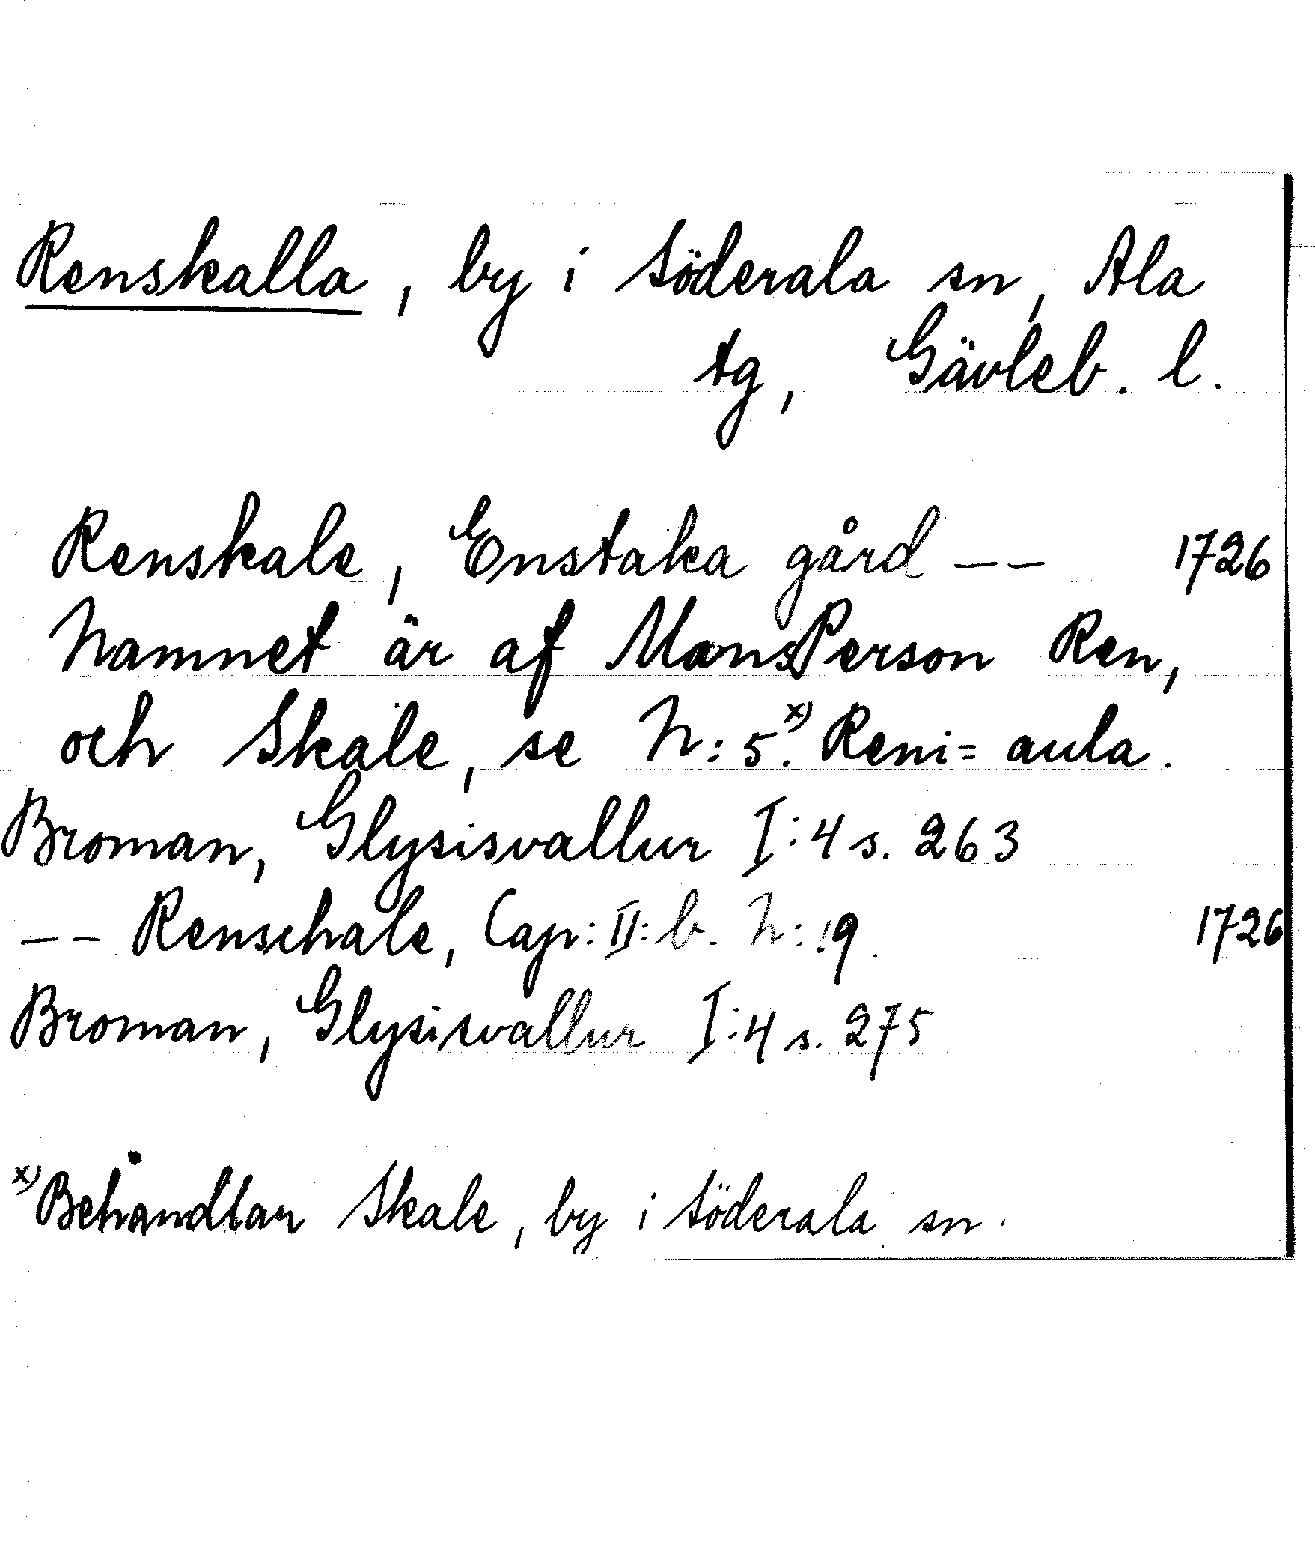 Renskalla, by i Söderala sn, Ala
tg, Gävleb. l.
Renskale, Enstaka gård -- 1726
Namnet är af MansPerson Ren,
och Skale, se N:5.x) Reni= aula.
Broman, Glysisvallur I:4 s. 263
-- Renschale, Cap: II: b. N: 19. 1726
Broman, Glysisvallur I:4 s. 275
x) Behandlar Skale, by i Söderala sn.